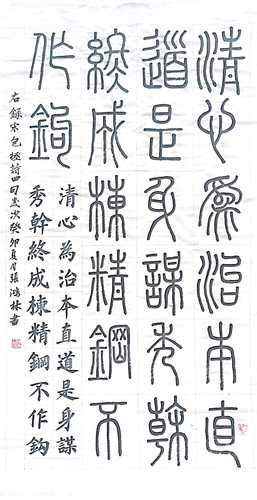 清心為治本直
道是身謀秀幹
終成棟精鋼不
作鉤
清心為治本直道是身謀
秀幹終成棟精鋼不作鈎
右錄宋包拯詩四句歲次癸卯夏月張鴻林書